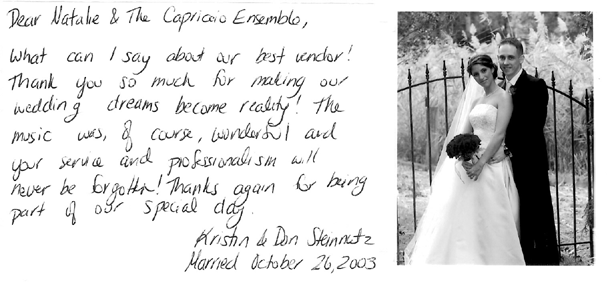 Dear Natalie & The Capriccio Ensemble,
What can I say about our best vendor!
Thank you so much for making our
wedding dreams become reality! The
music was, of course, wonderful and
your service and professionalism will
never be forgotten! Thanks again for being
part of our special day.
Kristin & Don Steinmetz
Married October 26, 2003